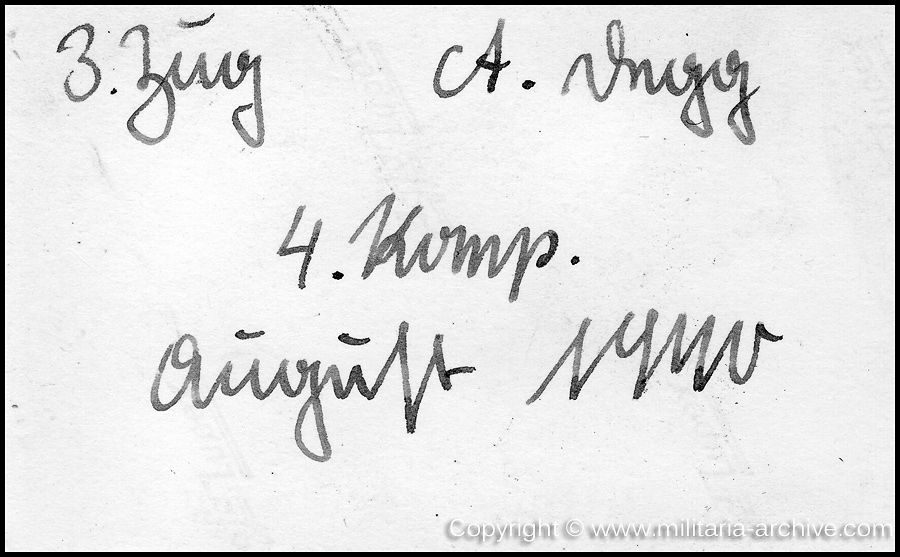 3. Zug A. Degg
4. Komp.
August 1940
Copyright © www.militaria-archive.com